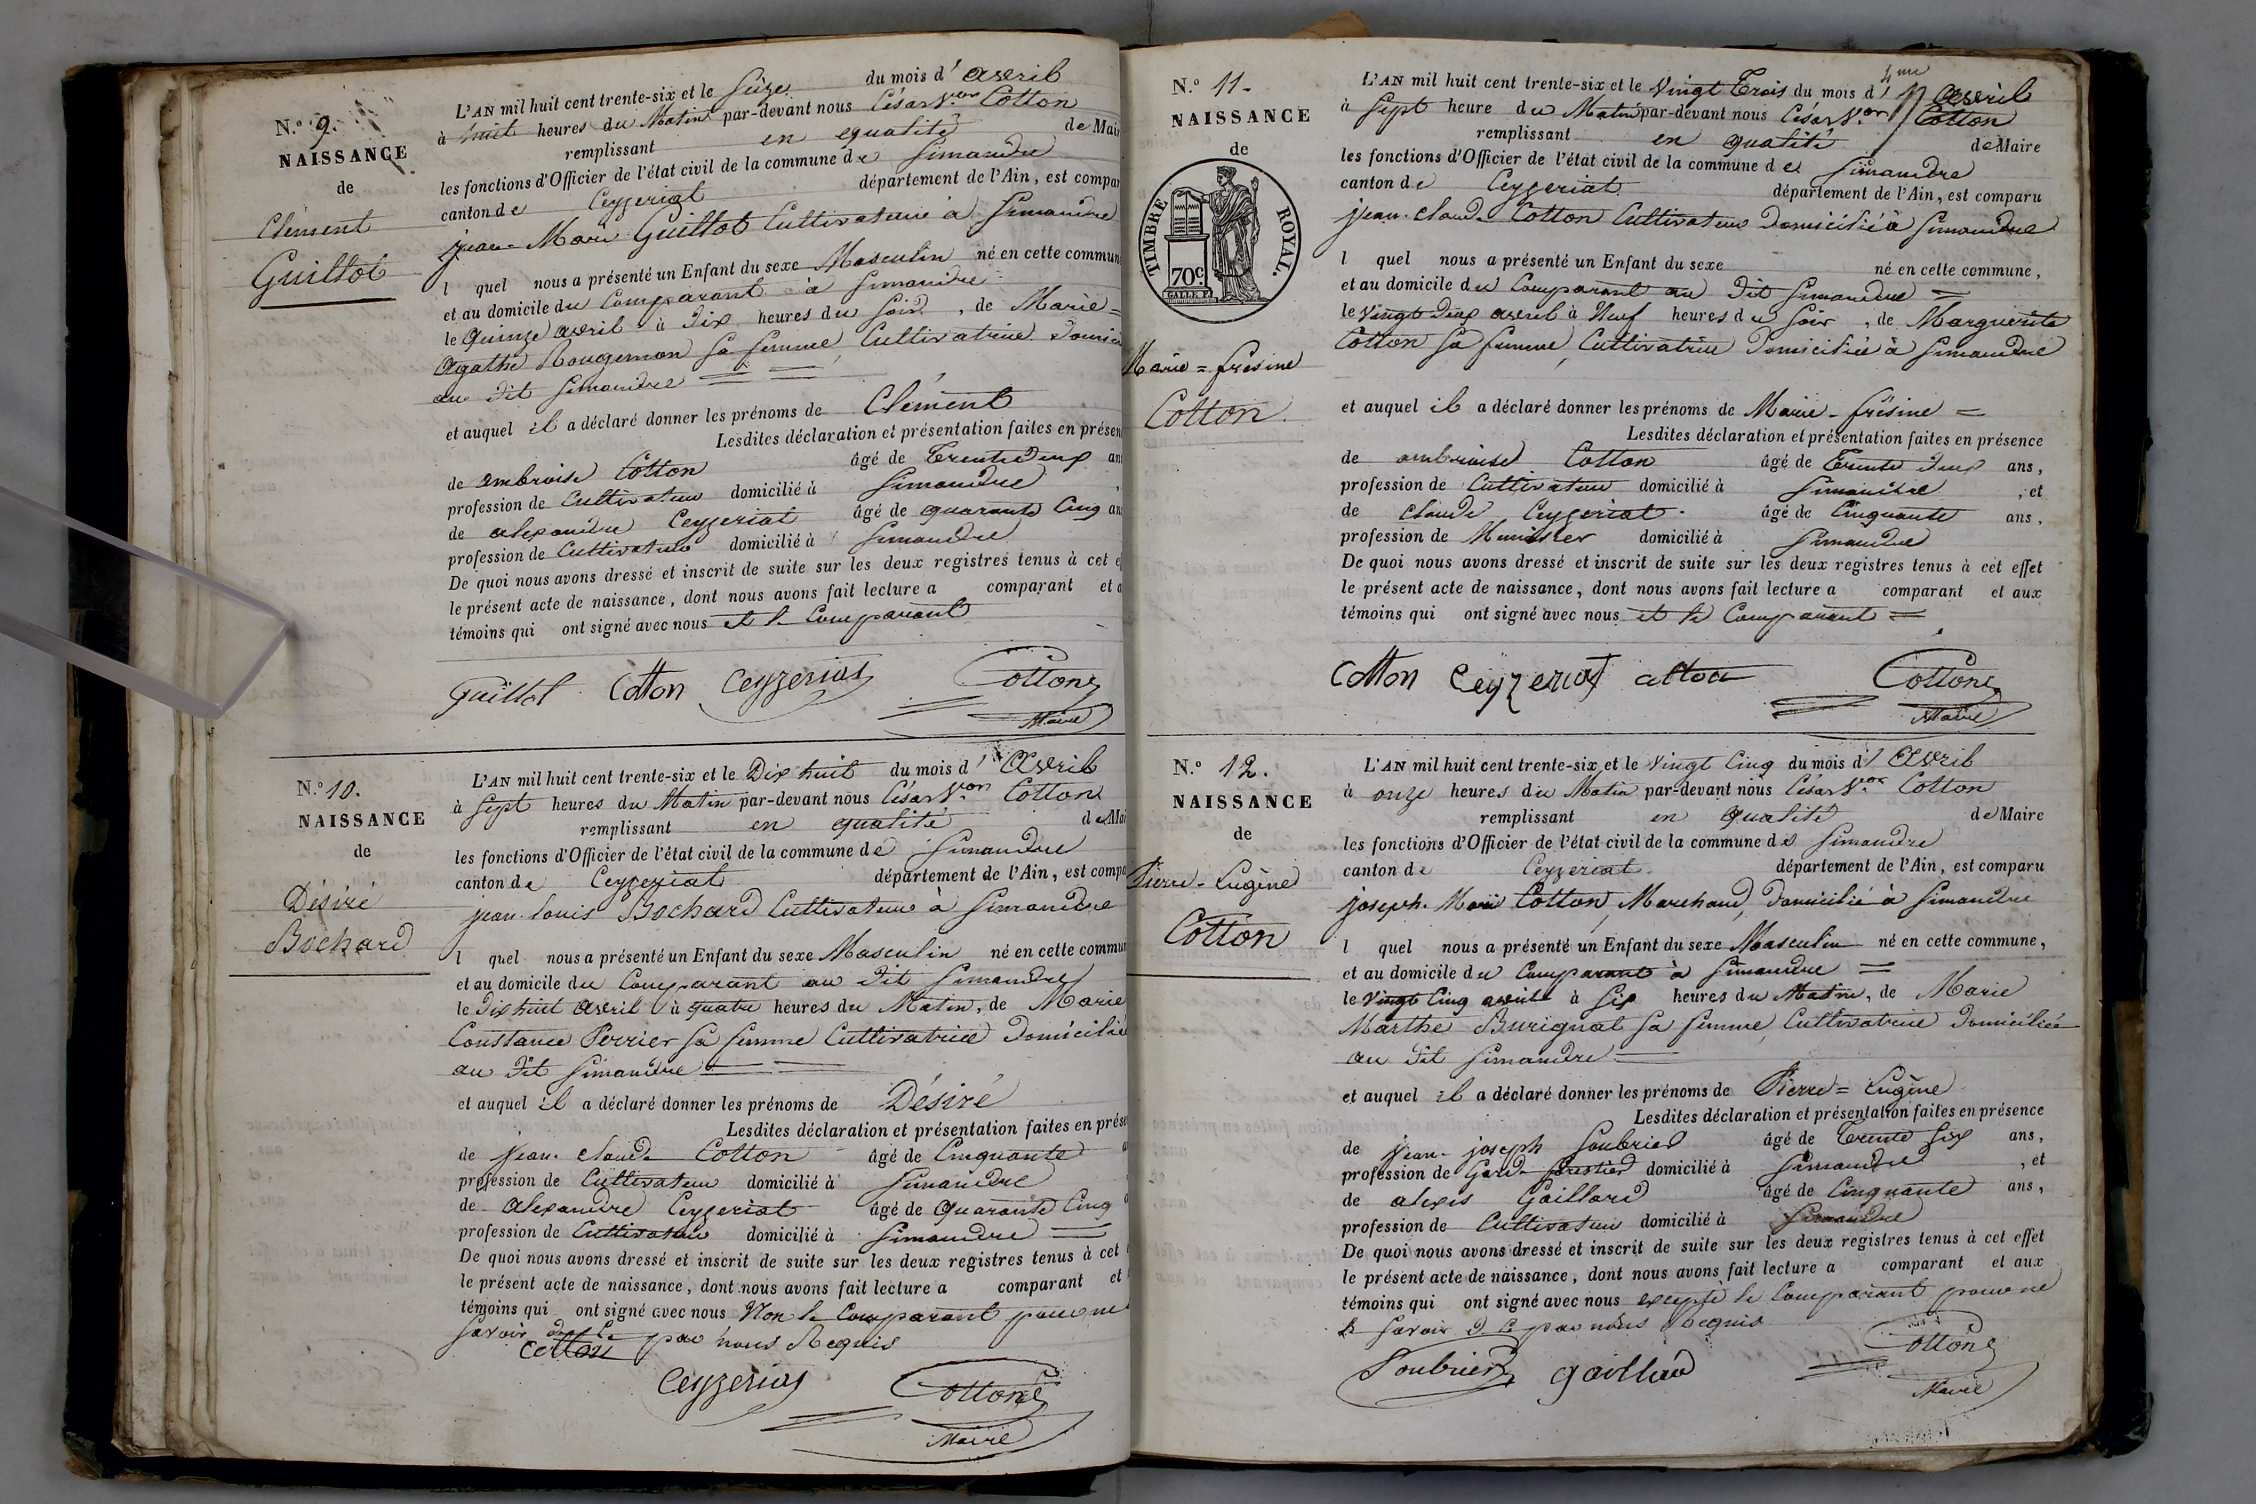 N.° 9.
NAISSANCE
de
Clément
Guillot
L'AN mil huit cent trente-six et le Sèize du mois d' Avril
à huit heures du Matin par-devant nous César V.or Cotton
remplissant en equalité de Mair
les fonctions d'Officier de l'état civil de la commune de Simandre
canton de Ceyzeriat département de l'Ain, est compar
jean-Marie Guillot Cultivateur à Simandre
l quel nous a présenté un Enfant du sexe Masculin né en cette commun
et au domicile du Comparant à Simandre
le Quinze avril à Dix heures du Soir, de Marie=
Agathe Rougemon Sa femme, Cultivatrice Domici
au dit Simandre
et auquel il a déclaré donner les prénoms de Clément
Lesdites déclaration et présentation faites en présen
de ambroise Cotton âgé de Trente deux an
profession de Cultivateur domicilié à Simandre
de alexandre Ceyzeriat âgé de quarante Cinq an
profession de Cultivateur domicilié à Simandre
De quoi nous avons dressé et inscrit de suite sur les deux registres tenus à cet e
le présent acte de naissance, dont nous avons fait lecture a comparant et a
témoins qui ont signé avec nous et le Comparant
Guillot Cotton Ceyzeriat Cotton
Maire
N.° 10.
NAISSANCE
de
Désiré
Bochard
L'AN mil huit cent trente-six et le Dix huit du mois d' Avril
à Sept heures du Matin par-devant nous César V.or Cotton
remplissant en qualité de Mai
les fonctions d'Officier de l'état civil de la commune de Simandre
canton de Ceyzeriat département de l'Ain, est compa
jean-louis Bochard Cultivateur à Simandre
l quel nous a présenté un Enfant du sexe Masculin né en cette commun
et au domicile du Comparant au dit Simandre
le Dix huit avril à quatre heures du Matin, de Marie
Constance Perrier Sa femme Cultivatrice Domicilié
au dit Simandre
et auquel il a déclaré donner les prénoms de Désiré
Lesdites déclaration et présentation faites en prése
de jean-claude Cotton âgé de Cinquante
profession de Cultivateur domicilié à Simandre
de alexandre Ceyzeriat âgé de Quarante Cinq
profession de Cultivateur domicilié à Simandre
De quoi nous avons dressé et inscrit de suite sur les deux registres tenus à cet
le présent acte de naissance, dont nous avons fait lecture a comparant et
témoins qui ont signé avec nous Non le Comparant pour ne
Savoir de ce par nous Requis
Cotton
Ceyzeriat Cotton
Maire
N.° 11.
NAISSANCE
de
TIMBRE ROYAL.
70c
Marie=frésine
Cotton
4me
L'AN mil huit cent trente-six et le Vingt Trois du mois d' Avril
à Sept heure du Matin par-devant nous César V.or Cotton
remplissant en qualité de Maire
les fonctions d'Officier de l'état civil de la commune de Simandre
canton de Ceyzeriat département de l'Ain, est comparu
jean-claude Cotton Cultivateur Domicilié à Simandre
l quel nous a présenté un Enfant du sexe né en cette commune,
et au domicile du Comparant au dit Simandre
le Vingt Deux avril à Neuf heures du Soir, de Marguerite
Cotton Sa femme, Cultivatrice Domiciliée à Simandre
et auquel il a déclaré donner les prénoms de Marie-frésine
Lesdites déclaration et présentation faites en présence
de ambroise Cotton âgé de Trente deux ans,
profession de Cultivateur domicilié à Simandre, et
de claude Ceyzeriat âgé de Cinquante ans,
profession de Menuisier domicilié à Simandre
De quoi nous avons dressé et inscrit de suite sur les deux registres tenus à cet effet
le présent acte de naissance, dont nous avons fait lecture a comparant et aux
témoins qui ont signé avec nous et le Comparant
Cotton Ceyzeriat Cotton Cotton
Maire
N.° 12.
NAISSANCE
de
Pierre-Eugène
Cotton
L'AN mil huit cent trente-six et le vingt Cinq du mois d' Avril
à onze heures du Matin par-devant nous César V.or Cotton
remplissant en Qualité de Maire
les fonctions d'Officier de l'état civil de la commune de Simandre
canton de Ceyzeriat département de l'Ain, est comparu
joseph-Marie Cotton, Marchand, Domicilié à Simandre
l quel nous a présenté un Enfant du sexe Masculin né en cette commune,
et au domicile du Comparant à Simandre
le Vingt Cinq avril à Six heures du Matin, de Marie
Marthe Burignat Sa femme, Cultivatrice Domiciliée
au dit Simandre
et auquel il a déclaré donner les prénoms de Pierre=Eugène
Lesdites déclaration et présentation faites en présence
de jean-joseph Soubrier âgé de Trente Six ans,
profession de Garde forestier domicilié à Simandre, et
de alexis Gaillard âgé de Cinquante ans,
profession de Cultivateur domicilié à Simandre
De quoi nous avons dressé et inscrit de suite sur les deux registres tenus à cet effet
le présent acte de naissance, dont nous avons fait lecture a comparant et aux
témoins qui ont signé avec nous excepté le Comparant pour ne
le Savoir de ce par nous Requis
Soubrier gaillard Cotton
Maire